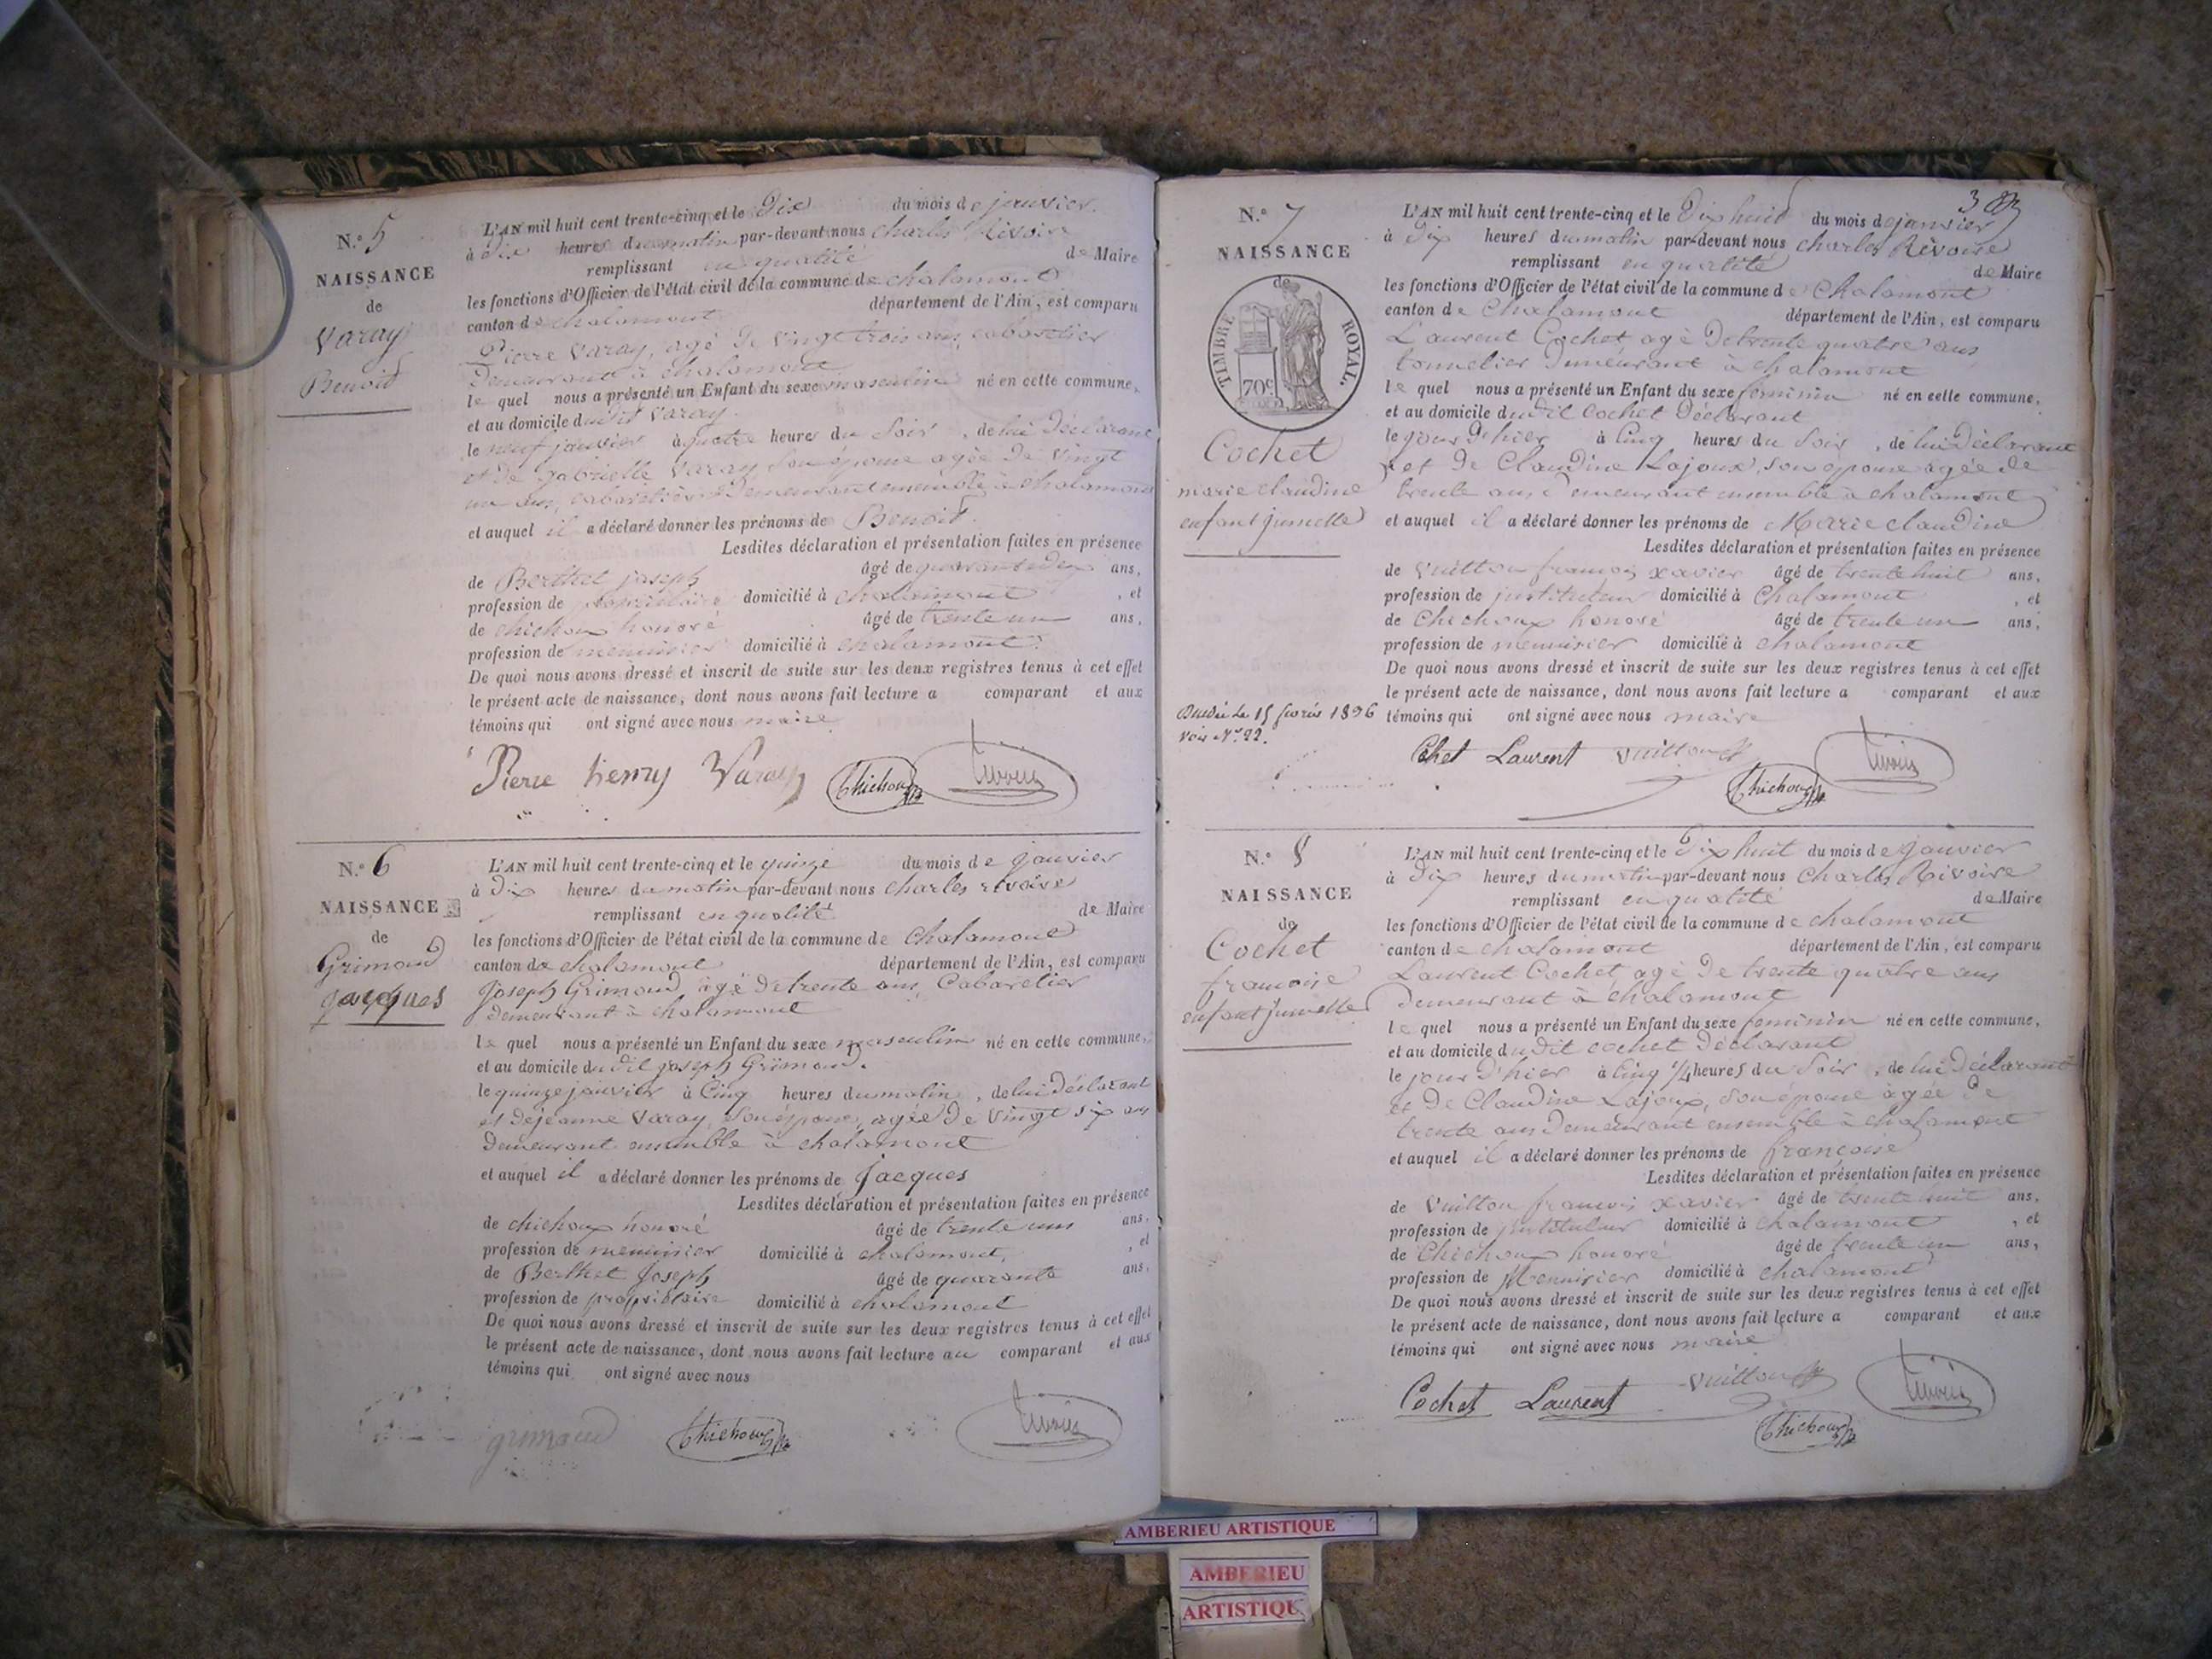 N.º 5
NAISSANCE
de
Varay
Benoit
L'AN mil huit cent trente-cinq et le Dix du mois de janvier.
à Dix heures du matin par-devant nous Charles Rivoire
remplissant en qualité de Maire
les fonctions d'Officier de l'état civil de la commune de chalamont
canton de chalamont département de l'Ain, est comparu
Pierre Varay, agé de vingt trois ans, cabaretier
demeurant à chalamont
le quel nous a présenté un Enfant du sexe masculin né en cette commune,
et au domicile dudit Varay.
le neuf janvier à quatre heures du soir, de lui déclarant
et de gabrielle Varay son épouse agée de vingt
un ans, demeurant ensemble à chalamont
et auquel il a déclaré donner les prénoms de Benoit.
Lesdites déclaration et présentation faites en présence
de Berthet joseph âgé de ans,
profession de propriétaire domicilié à chalamont, et
de chichoux honoré âgé de trente un ans,
profession de menuisier domicilié à chalamont.
De quoi nous avons dressé et inscrit de suite sur les deux registres tenus à cet effet
le présent acte de naissance, dont nous avons fait lecture a comparant et aux
témoins qui ont signé avec nous maire
Pierre henry Varay Chichoux Rivoire
N.º 6
NAISSANCE
de
Grimoud
jacques
L'AN mil huit cent trente-cinq et le quinze du mois de janvier
à Dix heures du matin par-devant nous charles rivoire
remplissant en qualité de Maire
les fonctions d'Officier de l'état civil de la commune de chalamont
canton de chalamont département de l'Ain, est comparu
Joseph Grimoud agé de trente ans, Cabaretier
demeurant à chalamont
le quel nous a présenté un Enfant du sexe masculin né en cette commune,
et au domicile dudit joseph Grimoud.
le quinze janvier à Cinq heures du matin, de lui déclarant
et de jeanne Varay, son épouse, agée de vingt six ans
demeurant ensemble à chalamont
et auquel il a déclaré donner les prénoms de Jacques
Lesdites déclaration et présentation faites en présence
de chichoux honoré âgé de trente un ans,
profession de menuisier domicilié à chalamont, et
de Berthet Joseph âgé de quarante ans.
profession de propriétaire domicilié à chalamont
De quoi nous avons dressé et inscrit de suite sur les deux registres tenus à cet effet
le présent acte de naissance, dont nous avons fait lecture au comparant et aux
témoins qui ont signé avec nous
grimoud Chichoux Rivoire
3
N.º 7
NAISSANCE
de
TIMBRE ROYAL.
70c
Cochet
marie claudine
enfant jumelle
L'AN mil huit cent trente-cinq et le Dix huit du mois de janvier
à Dix heures du matin par-devant nous charles Rivoire
remplissant en qualité de Maire
les fonctions d'Officier de l'état civil de la commune de Chalamont
canton de Chalamont département de l'Ain, est comparu
Laurent Cochet agé de trente quatre ans
tonnelier demeurant à chalamont
le quel nous a présenté un Enfant du sexe feminin né en cette commune,
et au domicile dudit cochet déclarant
le jour d'hier à Cinq heures du soir, de lui déclarant
et de Claudine Lajoux, son epouse agée de
trente ans demeurant ensemble à chalamont
et auquel il a déclaré donner les prénoms de Marie claudine
Lesdites déclaration et présentation faites en présence
de Vuitton françois xavier âgé de trente huit ans,
profession de jnstituteur domicilié à Chalamont, et
de Chichoux honoré âgé de trente un ans,
profession de menuisier domicilié à chalamont
De quoi nous avons dressé et inscrit de suite sur les deux registres tenus à cet effet
le présent acte de naissance, dont nous avons fait lecture a comparant et aux
témoins qui ont signé avec nous maire
le 15 février 1896
Voir Nº 22.
Cohet Laurent Vuitton Chichoux Rivoire
N.º 8
NAISSANCE
de
Cochet
francoise
enfant jumelle
L'AN mil huit cent trente-cinq et le Dix huit du mois de janvier
à Dix heures du matin par-devant nous Charles Rivoire
remplissant en qualité de Maire
les fonctions d'Officier de l'état civil de la commune de chalamont
canton de chalamont département de l'Ain, est comparu
Laurent Cochet, agé de trente quatre ans
demeurant à chalamont
le quel nous a présenté un Enfant du sexe feminin né en cette commune,
et au domicile dudit cochet déclarant
le jour d'hier à Cinq 1/4 heures du soir, de lui déclarant
et de Claudine Lajoux, son epouse agée de
trente ans demeurant ensemble à chalamont
et auquel il a déclaré donner les prénoms de francoise
Lesdites déclaration et présentation faites en présence
de Vuitton françois xavier âgé de trente huit ans,
profession de jnstituteur domicilié à chalamont, et
de Chichoux honoré âgé de trente un ans,
profession de Menuisier domicilié à chalamont
De quoi nous avons dressé et inscrit de suite sur les deux registres tenus à cet effet
le présent acte de naissance, dont nous avons fait lecture a comparant et aux
témoins qui ont signé avec nous maire
Cochet Laurent Vuitton Chichoux Rivoire
AMBERIEU ARTISTIQUE
AMBERIEU
ARTISTIQU